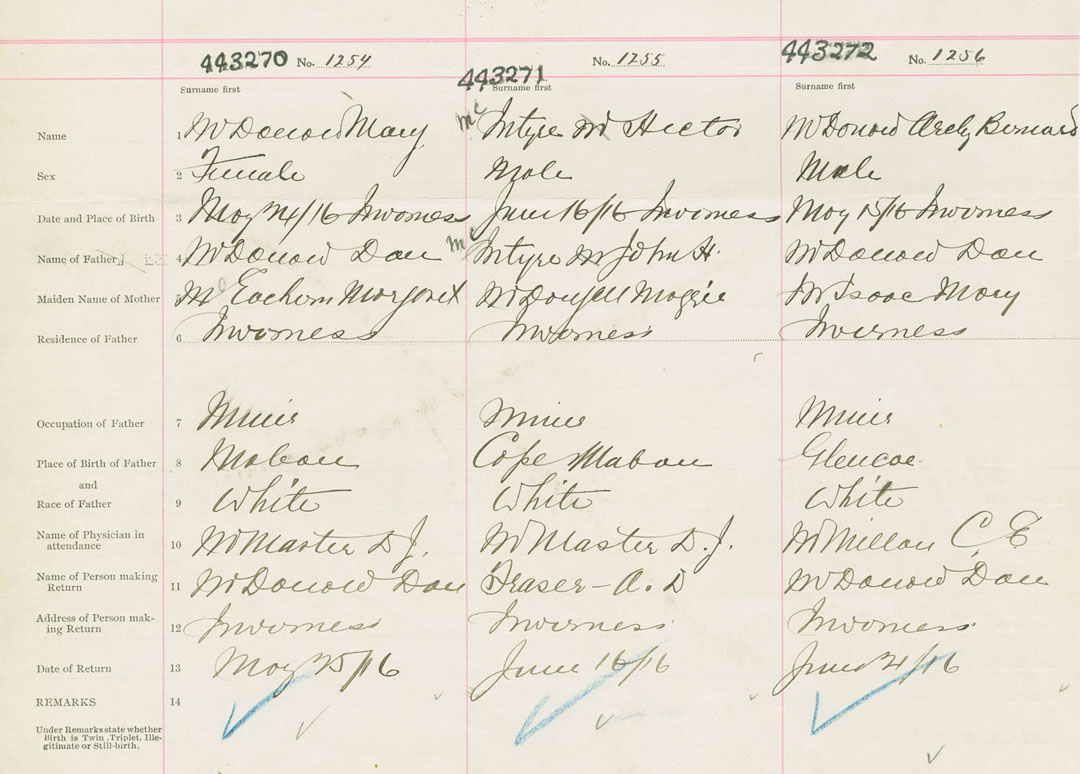 443270 No. 1254 443271 No. 1255 443272 No. 1256
Surname first Surname first Surname first
Name 1 McDonald Mary Mc Intyre Mc Hector McDonald Archy Bernard
Sex 2 Female Male Male
Date and Place of Birth 3 May 24/16 Inverness June 16/16 Inverness May 15/16 Inverness
Name of Father 4 McDonald Dan Mc Intyre Mc John H. McDonald Dan
Maiden Name of Mother McEachern Margaret McDougall Maggie McIsaac Mary
Residence of Father 6 Inverness Inverness Inverness
Occupation of Father 7 Miner Miner Miner
Place of Birth of Father 8 Mabou Cape Mabou Glencoe
and
Race of Father 9 White White White
Name of Physician in
attendance 10 McMaster D J. McMaster D. J. McMillan C. E
Name of Person making
Return 11 McDonald Dan Fraser - A. D McDonald Dan
Address of Person mak-
ing Return 12 Inverness Inverness Inverness
Date of Return 13 May 25/16 June 16/16 June 21/16
REMARKS 14
Under Remarks state whether
Birth is Twin, Triplet, Ille-
gitimate or Still-birth.